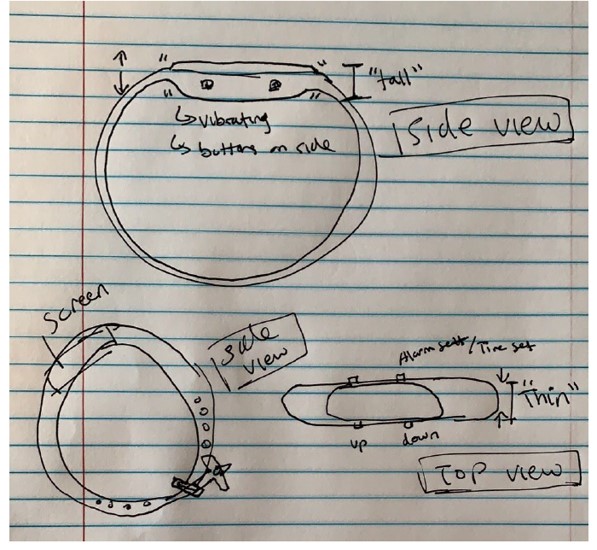 "tall"
Side view
↳ vibrating
↳ buttons on side
Screen
Side
view
Alarm set/Time set
"Thin"
up down
TOP view